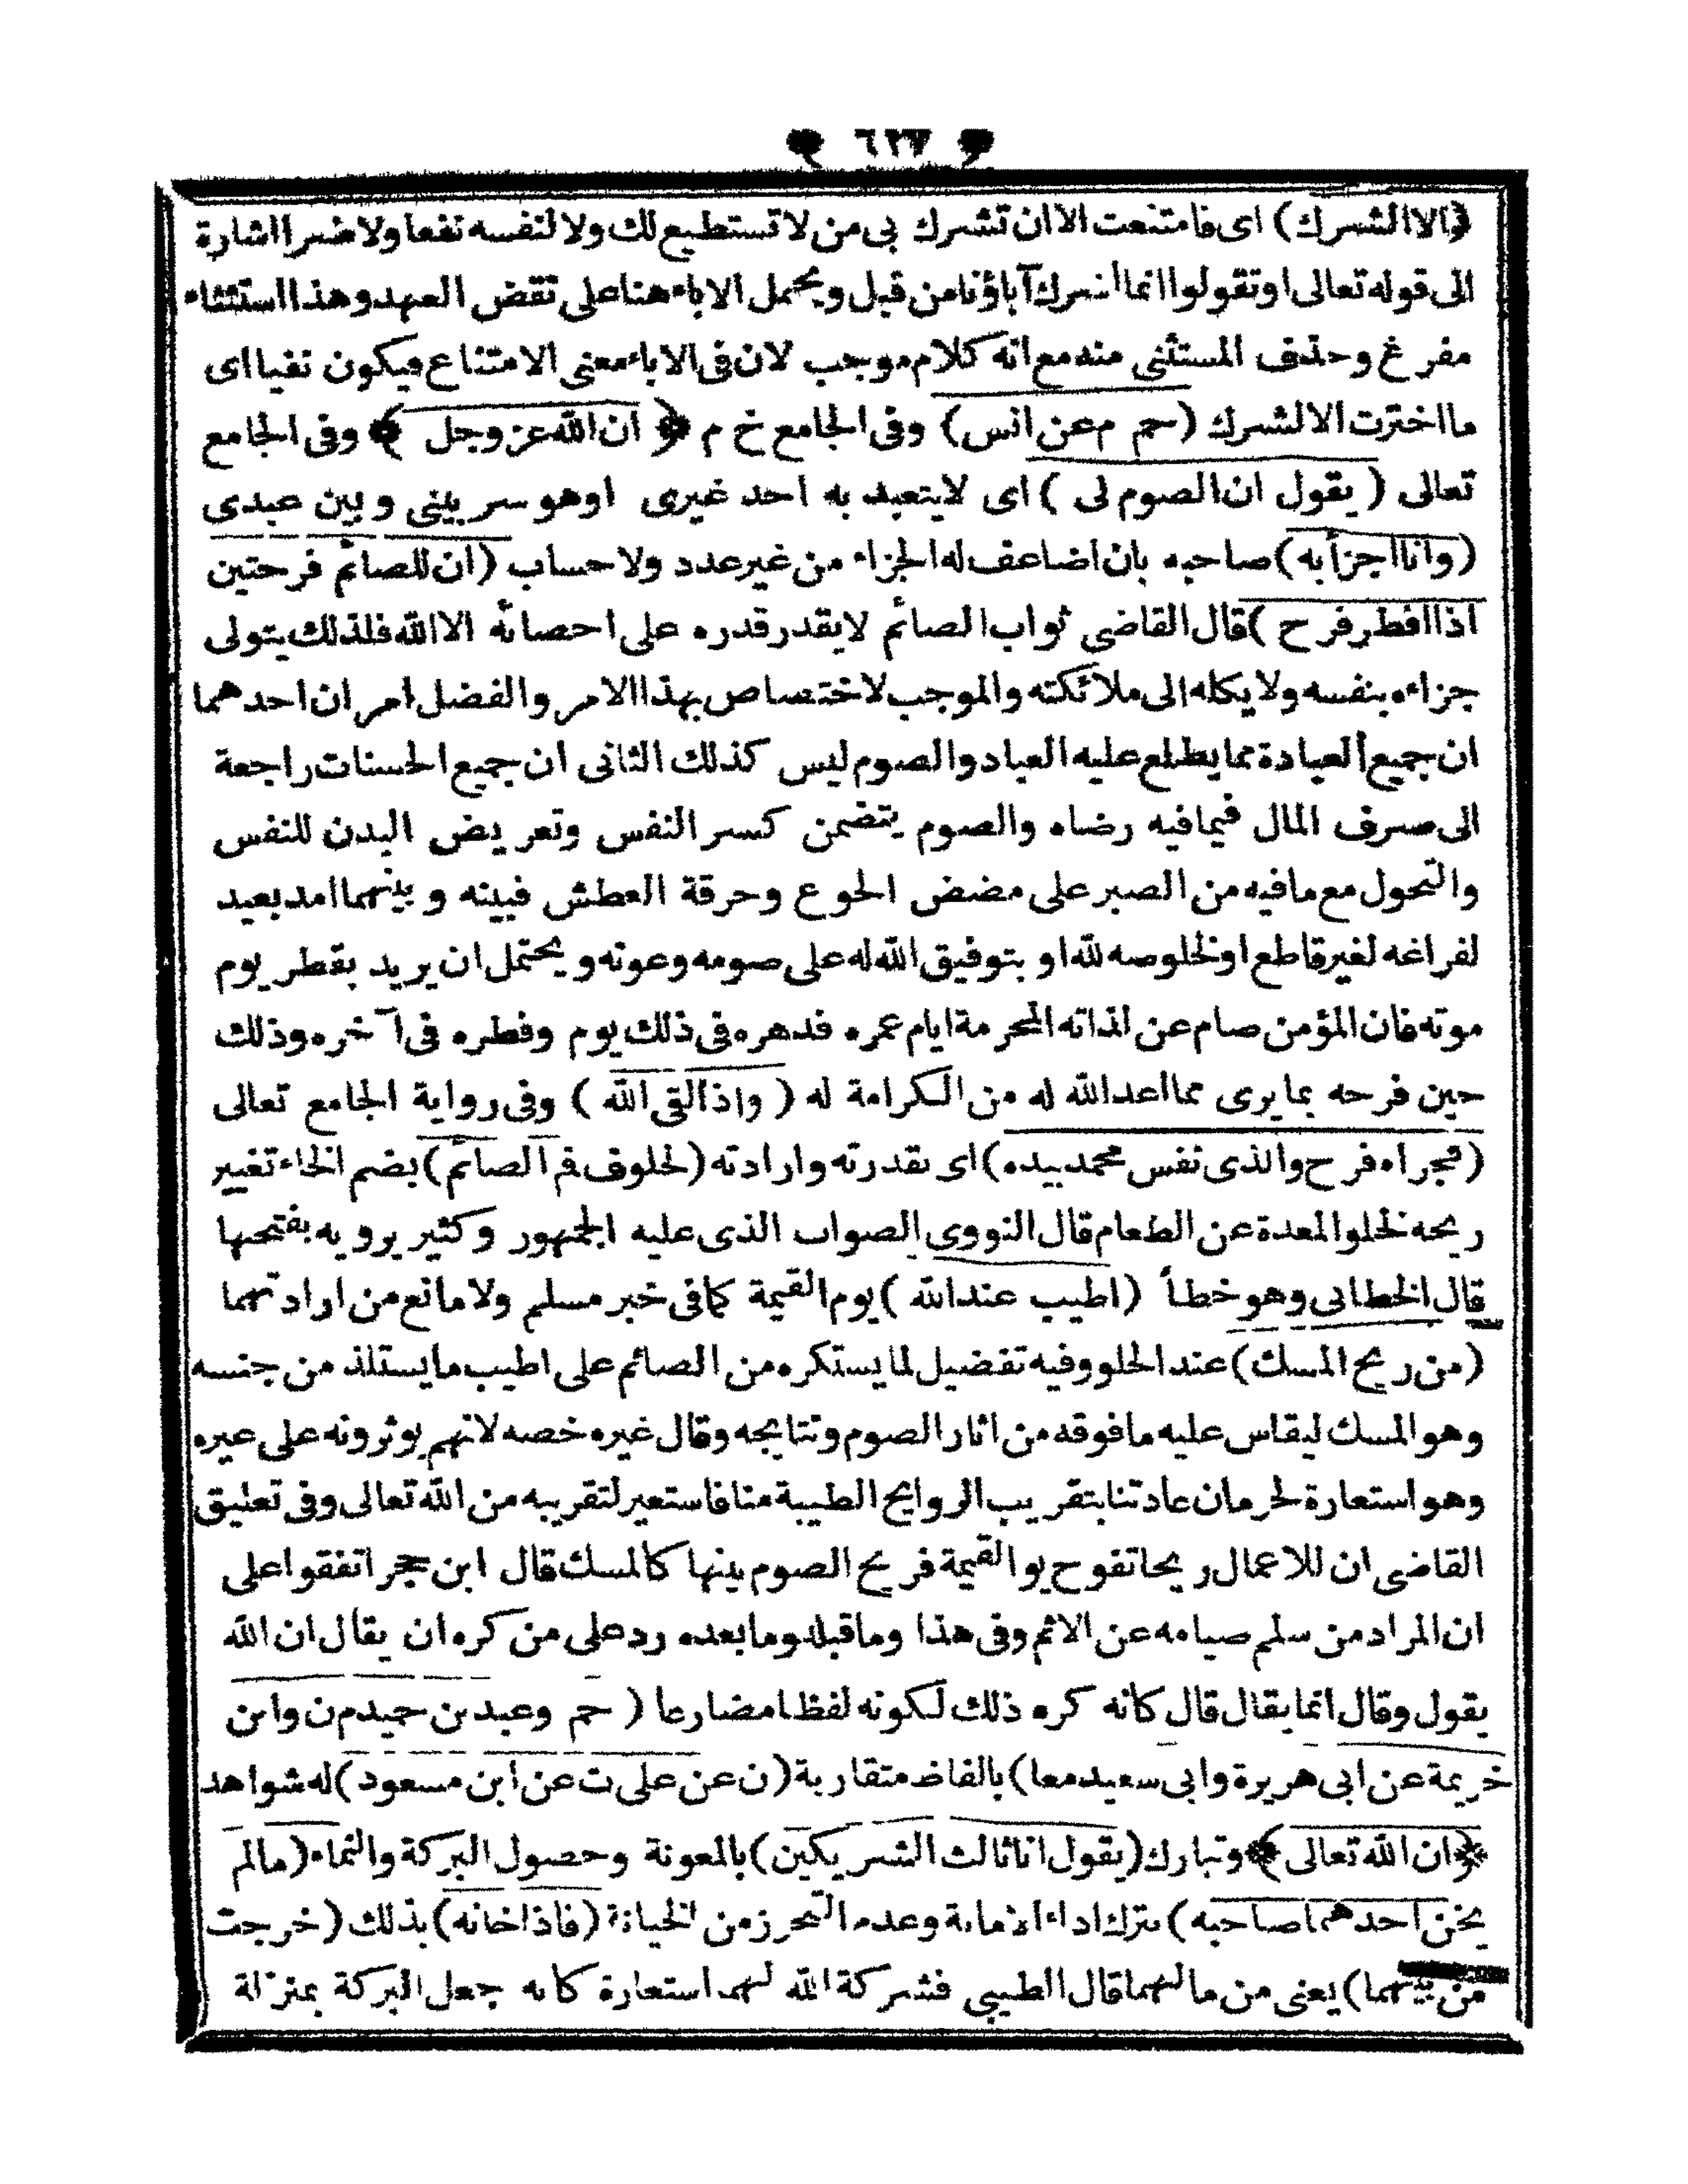 ٦٣٧
(الا الشرك) اى فامتنعت الا ان تشرك بى من لا تستطيع لك ولا لنفسه نفعا ولا ضرا اشارة
الى قوله تعالى او تقولوا انما اشرك آباؤنا من قبل ويحمل الاباء هنا على نقض العهد وهذا استثناء
مفرغ وحذف المستثنى منه مع انه كلام موجب لان فى الاباء معنى الامتناع فيكون نفيا اى
ما اخترت الا الشرك (حم م عن انس) وفى الجامع خ م ﴿ ان الله عز وجل ﴾ وفى الجامع
تعالى (يقول ان الصوم لى) اى لا يتعبد به احد غيرى او هو سر بينى وبين عبدى
(وانا اجزأ به) صاحبه بان اضاعف له الجزاء من غير عدد ولا حساب (ان للصائم فرحتين
اذا افطر فرح) قال القاضى ثواب الصائم لا يقدر قدره على احصائه الا الله فلذلك يتولى
جزاءه بنفسه ولا يكله الى ملائكته والموجب لاختصاص بهذا الامر والفضل امر ان احدهما
ان جميع العبادة مما يطلع عليه العباد والصوم ليس كذلك الثانى ان جميع الحسنات راجعة
الى صرف المال فيما فيه رضاه والصوم يتضمن كسر النفس وتعريض البدن للنفس
والتحول مع ما فيه من الصبر على مضض الجوع وحرقة العطش فبينه وبينهما امد بعيد
لفراغه لغير قاطع او لخلوصه لله او بتوفيق الله له على صومه وعونه ويحتمل ان يريد بقطر يوم
موته فان المؤمن صام عن لذاته المحرمة ايام عمره فدهره فى ذلك يوم وفطره فى آخره وذلك
حين فرحه بما يرى مما اعد الله له من الكرامة له (واذا لقى الله) وفى رواية الجامع تعالى
(فجراه فرح والذى نفس محمد بيده) اى بقدرته وارادته (لخلوف فم الصائم) بضم الخاء تغيير
ريحه لخلو المعدة عن الطعام قال النووى الصواب الذى عليه الجمهور وكثير يرويه بفتحها
قال الخطابى وهو خطأ (اطيب عند الله) يوم القيمة كما فى خبر مسلم ولا مانع من ارادتهما
(من ريح المسك) عند الخلو وفيه تفضيل لما يستكره من الصائم على اطيب ما يستلذ من جنسه
وهو المسك ليقاس عليه ما فوقه من اثار الصوم ونتايجه وقال غيره خصه لانهم يوثرونه على غيره
وهو استعارة لحرمان عادتنا بتقريب الروايح الطيبة منا فاستعير لتقريبه من الله تعالى وفى تعليق
القاضى ان للاعمال ريحا تفوح يوا القيمة فريح الصوم بينها كالمسك قال ابن حجر اتفقوا على
ان المراد من سلم صيامه عن الاثم وفى هذا وما قبله وما بعده رد على من كره ان يقال ان الله
يقول وقال انما يقال قال كانه كره ذلك لكونه لفظا مضارعا (حم وعبد بن حميد م ن وابن
خزيمة عن ابى هريرة وابى سعيد معا) بالفاظ متقاربة (ن عن على ت عن ابن مسعود) له شواهد
﴿ان الله تعالى﴾ وتبارك (يقول انا ثالث الشريكين) بالمعونة وحصول البركة والنماء (ما لم
يخن احدهما صاحبه) بترك اداء الامانة وعدم التحرز من الخيانة (فاذا خانه) بذلك (خرجت
من بينهما) يعنى من مالهما قال الطيبى فشركة الله لهما استعارة كانه جعل البركة بمنزلة